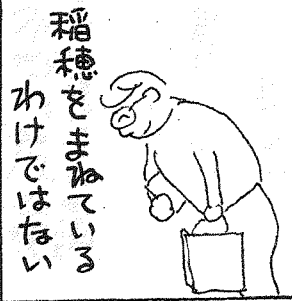 稲穂をまねている
わけではない